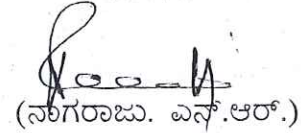 (ನಾಗರಾಜು. ಎನ್.ಆರ್.)